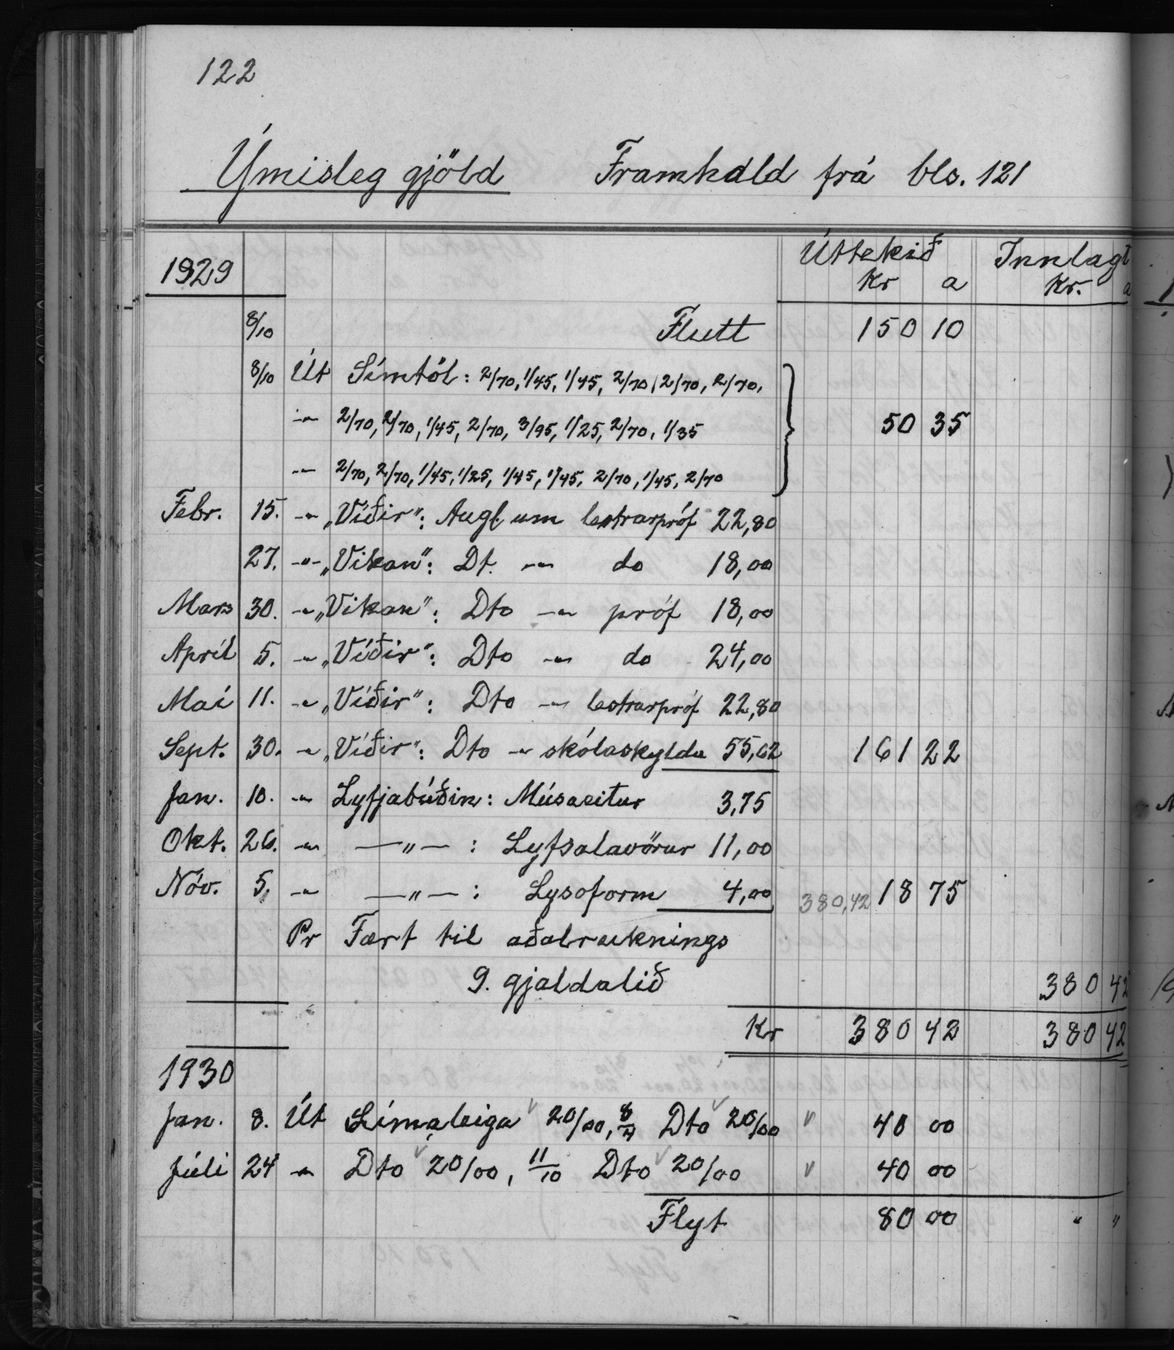 122
Ýmisleg gjöld Framhald frá bls. 121
1929 Úttekið Innlagt
Kr a Kr. a
8/10 Flutt 150 10
8/10 Út Símtöl: 2/70, 1/45, 1/45, 2/70, 2/70, 2/70,
-"- 2/70, 2/70, 1/45, 2/70, 3/95, 1/25, 2/70, 1/35 50 35
-"- 2/70, 2/70, 1/45, 1/25, 1/45, 1/45, 2/70, 1/45, 2/70
Febr. 15. -"- „Víðir": Augl. um lestrarpróf 22,80
27. -"- „Vikan": Dt. -"- do 18,00
Mars 30. -"- „Vikan": Dto -"- próf 18,00
Apríl 5. -"- „Víðir": Dto -"- do - 24,00
Maí 11. -"- „Víðir": Dto -"- lestrarpróf 22,80
Sept. 30. -"- „Víðir": Dto -"- skólaskylda 55,62 161 22
Jan. 10. -"- Lyfjabúðin: Músaeitur 3,75
Okt. 26. -"- —"— : Lyfsalavörur 11,00
Nóv. 5. -"- —"— : Lysoform 4,00 380,42 18 75
Pr Fært til aðalreiknings
9. gjaldalið 380 42
Kr 380 42 380 42
1930
Jan. 8. Út Símaleiga 20/00, 8/7 Dto 20/00 40 00
Júlí 24 -"- Dto 20/00, 11/10 Dto 20/00 40 00
Flyt 80 00 " "